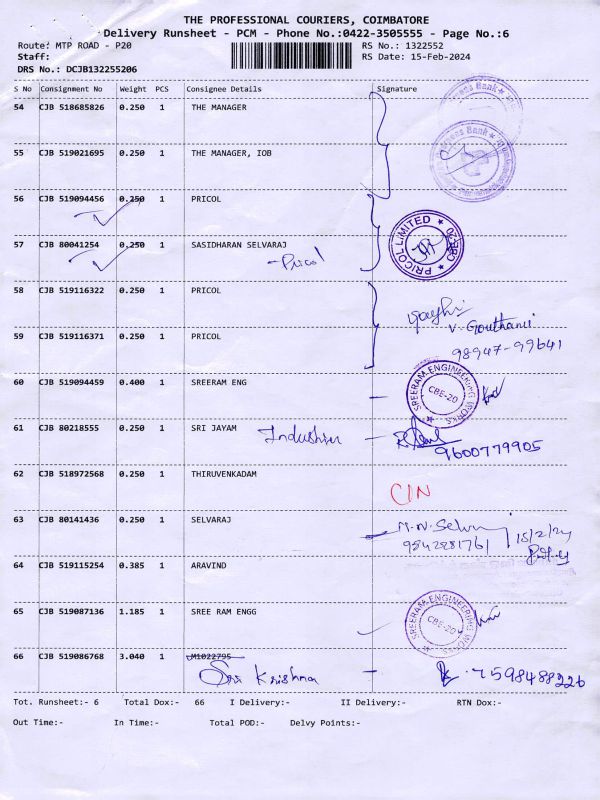 THE PROFESSIONAL COURIERS, COIMBATORE
Delivery Runsheet - PCM - Phone No.:0422-3505555 - Page No.:6
Route: MTP ROAD - P20 RS No.: 1322552
Staff: RS Date: 15-Feb-2024
DRS No.: DCJB132255206
S No Consignment No Weight PCS Consignee Details Signature
54 CJB 518685826 0.250 1 THE MANAGER
55 CJB 519021695 0.250 1 THE MANAGER, IOB
56 CJB 519094456 0.250 1 PRICOL
PRICOL LIMITED CBE-20
57 CJB 80041254 0.250 1 SASIDHARAN SELVARAJ
- Pricol
58 CJB 519116322 0.250 1 PRICOL
V. Gouthami
59 CJB 519116371 0.250 1 PRICOL
98947-99641
60 CJB 519094459 0.400 1 SREERAM ENG
SREERAM ENGINEERING WORKS CBE-20
61 CJB 80218555 0.250 1 SRI JAYAM
9600779905
62 CJB 518972568 0.250 1 THIRUVENKADAM
C/N
63 CJB 80141436 0.250 1 SELVARAJ
15/2/24
64 CJB 519115254 0.385 1 ARAVIND
65 CJB 519087136 1.185 1 SREE RAM ENGG
SREERAM ENGINEERING WORKS CBE-20
66 CJB 519086768 3.040 1 JM1022795
Sri Krishna - 7598488226
Tot. Runsheet:- 6 Total Dox:- 66 I Delivery:- II Delivery:- RTN Dox:-
Out Time:- In Time:- Total POD:- Delvy Points:-